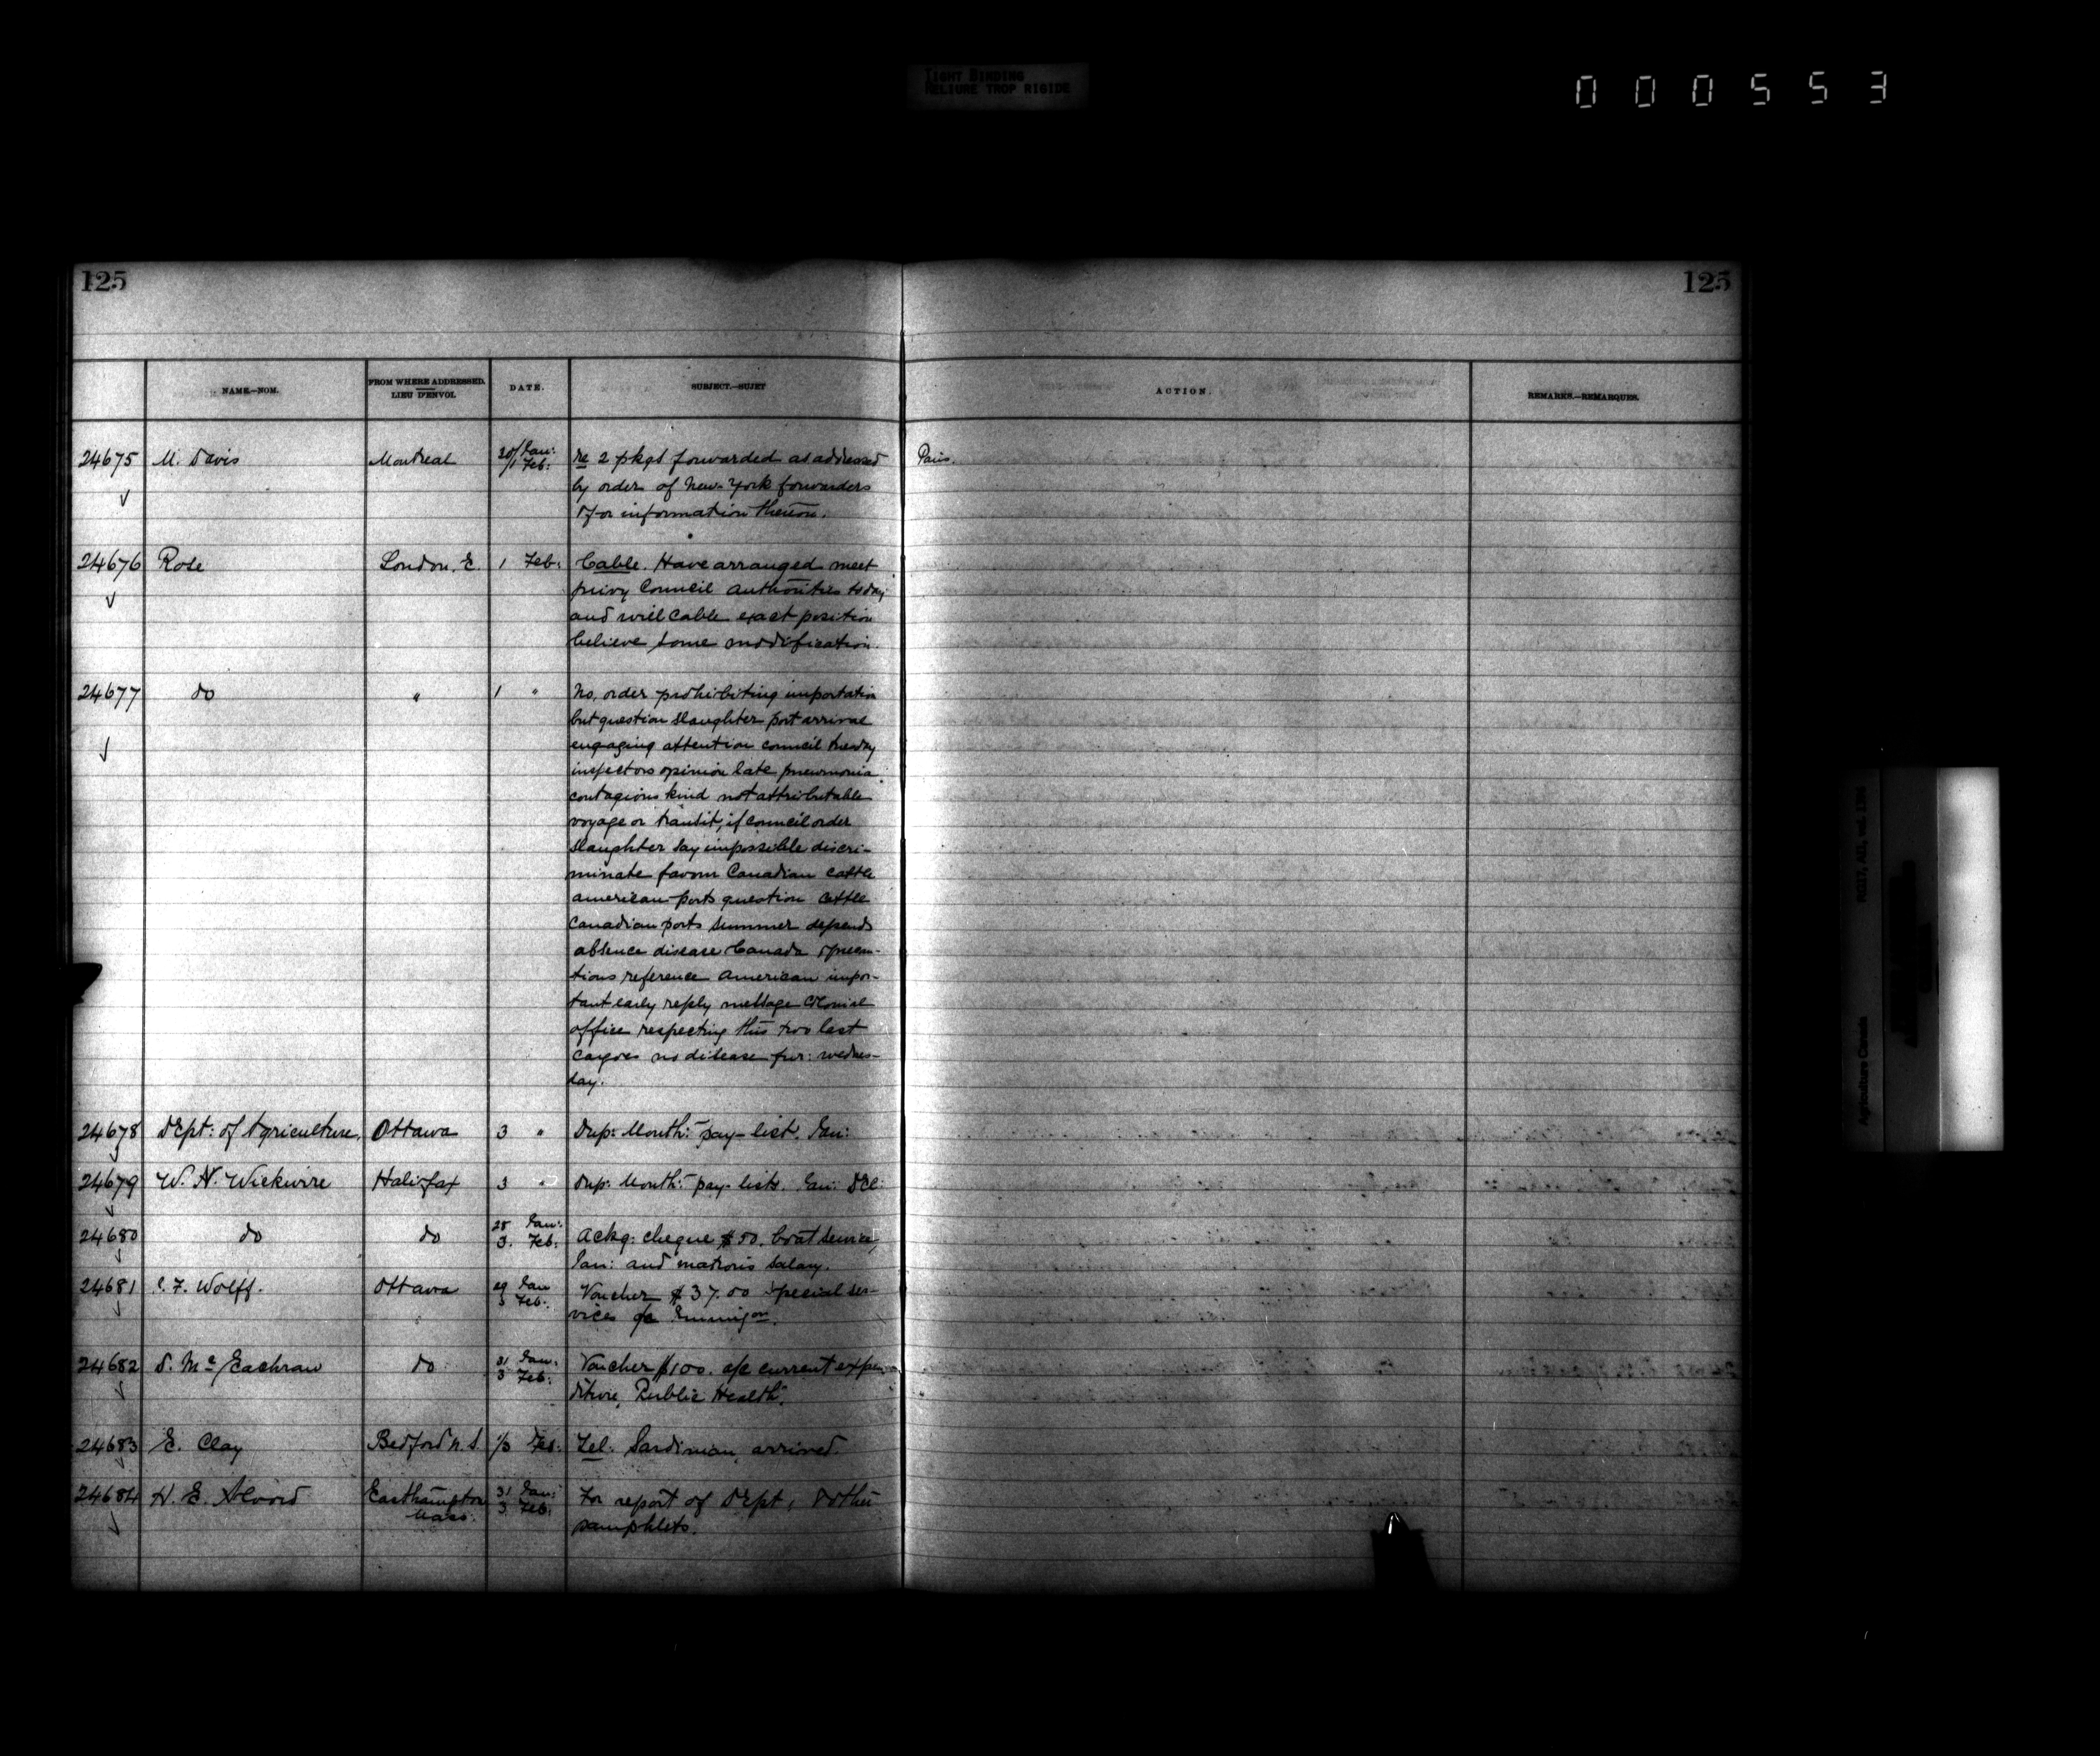 TIGHT BINDING
RELIURE TROP RIGIDE
000553
125
125
NAME.—NOM.
FROM WHERE ADDRESSED.
LIEU D'ENVOI.
DATE.
SUBJECT.—SUJET
ACTION.
REMARKS.—REMARQUES.
24675 M. Davis Montreal 30/1 Jan: Feb: re 2 pkgs forwarded as addressed Paris.
by order of New-York forwarders
& for information thereon.
24676 Rose London. E. 1 Feb: Cable. Have arranged meet
privy Council authorities today
and will cable exact position
believe some modification.
24677 do " 1 " No, order prohibiting importation
but question slaughter port arrival
engaging attention council tuesday
inspectors opinion late pneumonia
contagious kind not attributable
voyage or transit, if council order
slaughter say impossible discri-
minate favour Canadian cattle
american ports question cattle
Canadian ports summer depends
absence disease Canada & precau-
tions reference american impor-
tant early reply message Colonial
office respecting this two last
cargoes no disease fur: wednes-
day.
24678 Dept: of Agriculture. Ottawa 3 " Dup: Month: pay-list. Jan:
24679 W. N. Wickwire Halifax 3 " Dup: Month: pay-lists. Jan: Dec:
24680 do do 28 Jan: 3. Feb: Ackg: cheque $50. boat service,
Jan: and matron's salary.
24681 C. F. Wolff. Ottawa 29 Jan 3 Feb: Voucher $37.00 special ser-
vices a/c Emmigon.
24682 D. McEachran do 31 Jan: 3 Feb: Voucher $100. a/c current expen
diture, Public Health.
24683 E. Clay Bedford N.S. 1/3 Feb: Tel: Sardinian, arrived.
24684 H. E. Alvord Easthampton 31 Jan: 3 Feb: For report of Dept, & other
Mass: pamphlets.
RG17, AII, vol. 1396
Agriculture Canada